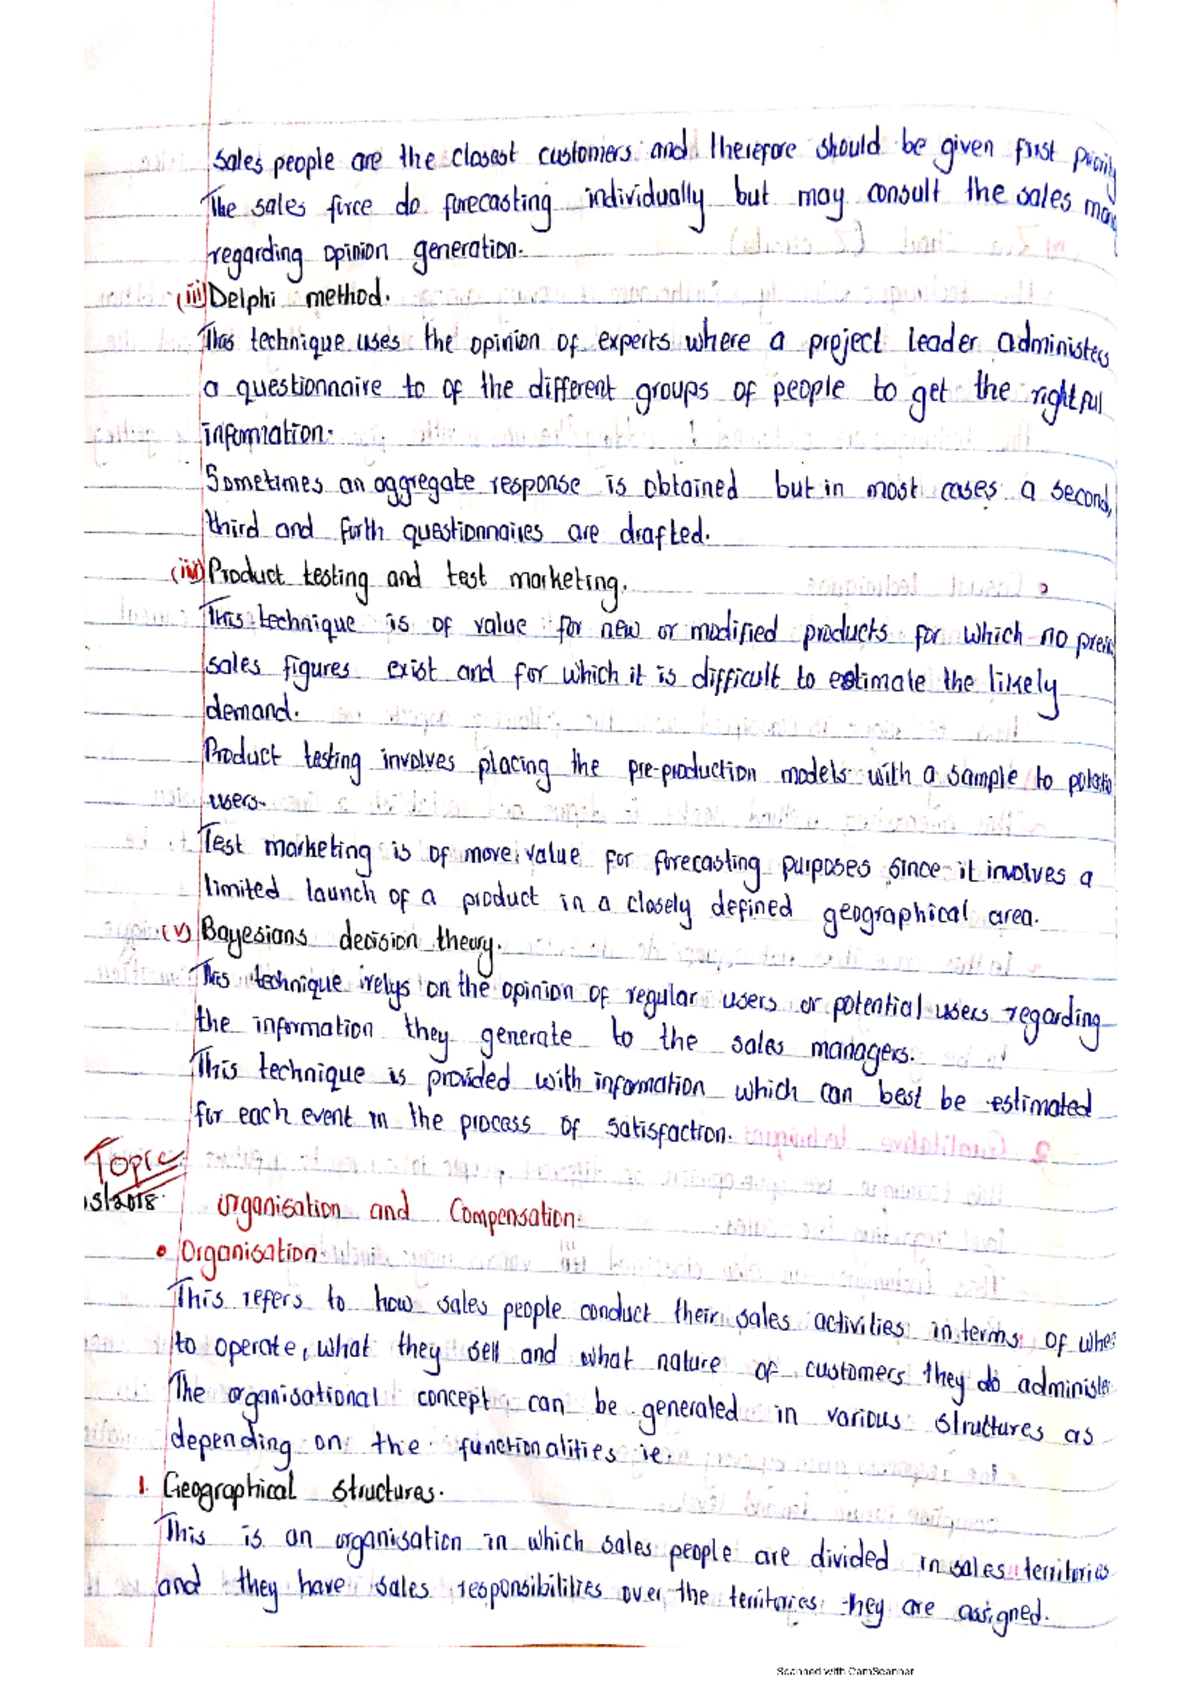 Sales people are the closest customers and therefore should be given first priority
The sales force do forecasting individually but may consult the sales
regarding opinion generation.
(iii) Delphi method.
This technique uses the opinion of experts where a project leader administers
a questionnaire to of the different groups of people to get the rightful
information.
Sometimes an aggregate response is obtained but in most cases a second,
third and forth questionnaires are drafted.
(iv) Product testing and test marketing.
This technique is of value for new or modified products for which no
sales figures exist and for which it is difficult to estimate the likely
demand.
Product testing involves placing the pre-production models with a sample to
users.
Test marketing is of more value for forecasting purposes since it involves a
limited launch of a product in a closely defined geographical area.
(v) Bayesians decision theory.
This technique relys on the opinion of regular users or potential users regarding
the information they generate to the sales managers.
This technique is provided with information which can best be estimated
for each event in the process of satisfaction.
Topic
15/2018
Organisation and Compensation.
• Organisation.
This refers to how sales people conduct their sales activities in terms of
to operate, what they sell and what nature of customers they do
The organisational concept can be generated in various structures as
depending on the functionalities ie.
1. Geographical structures.
This is an organisation in which sales people are divided in sales territories
and they have sales responsibilities over the territories they are assigned.
Scanned with CamScanner